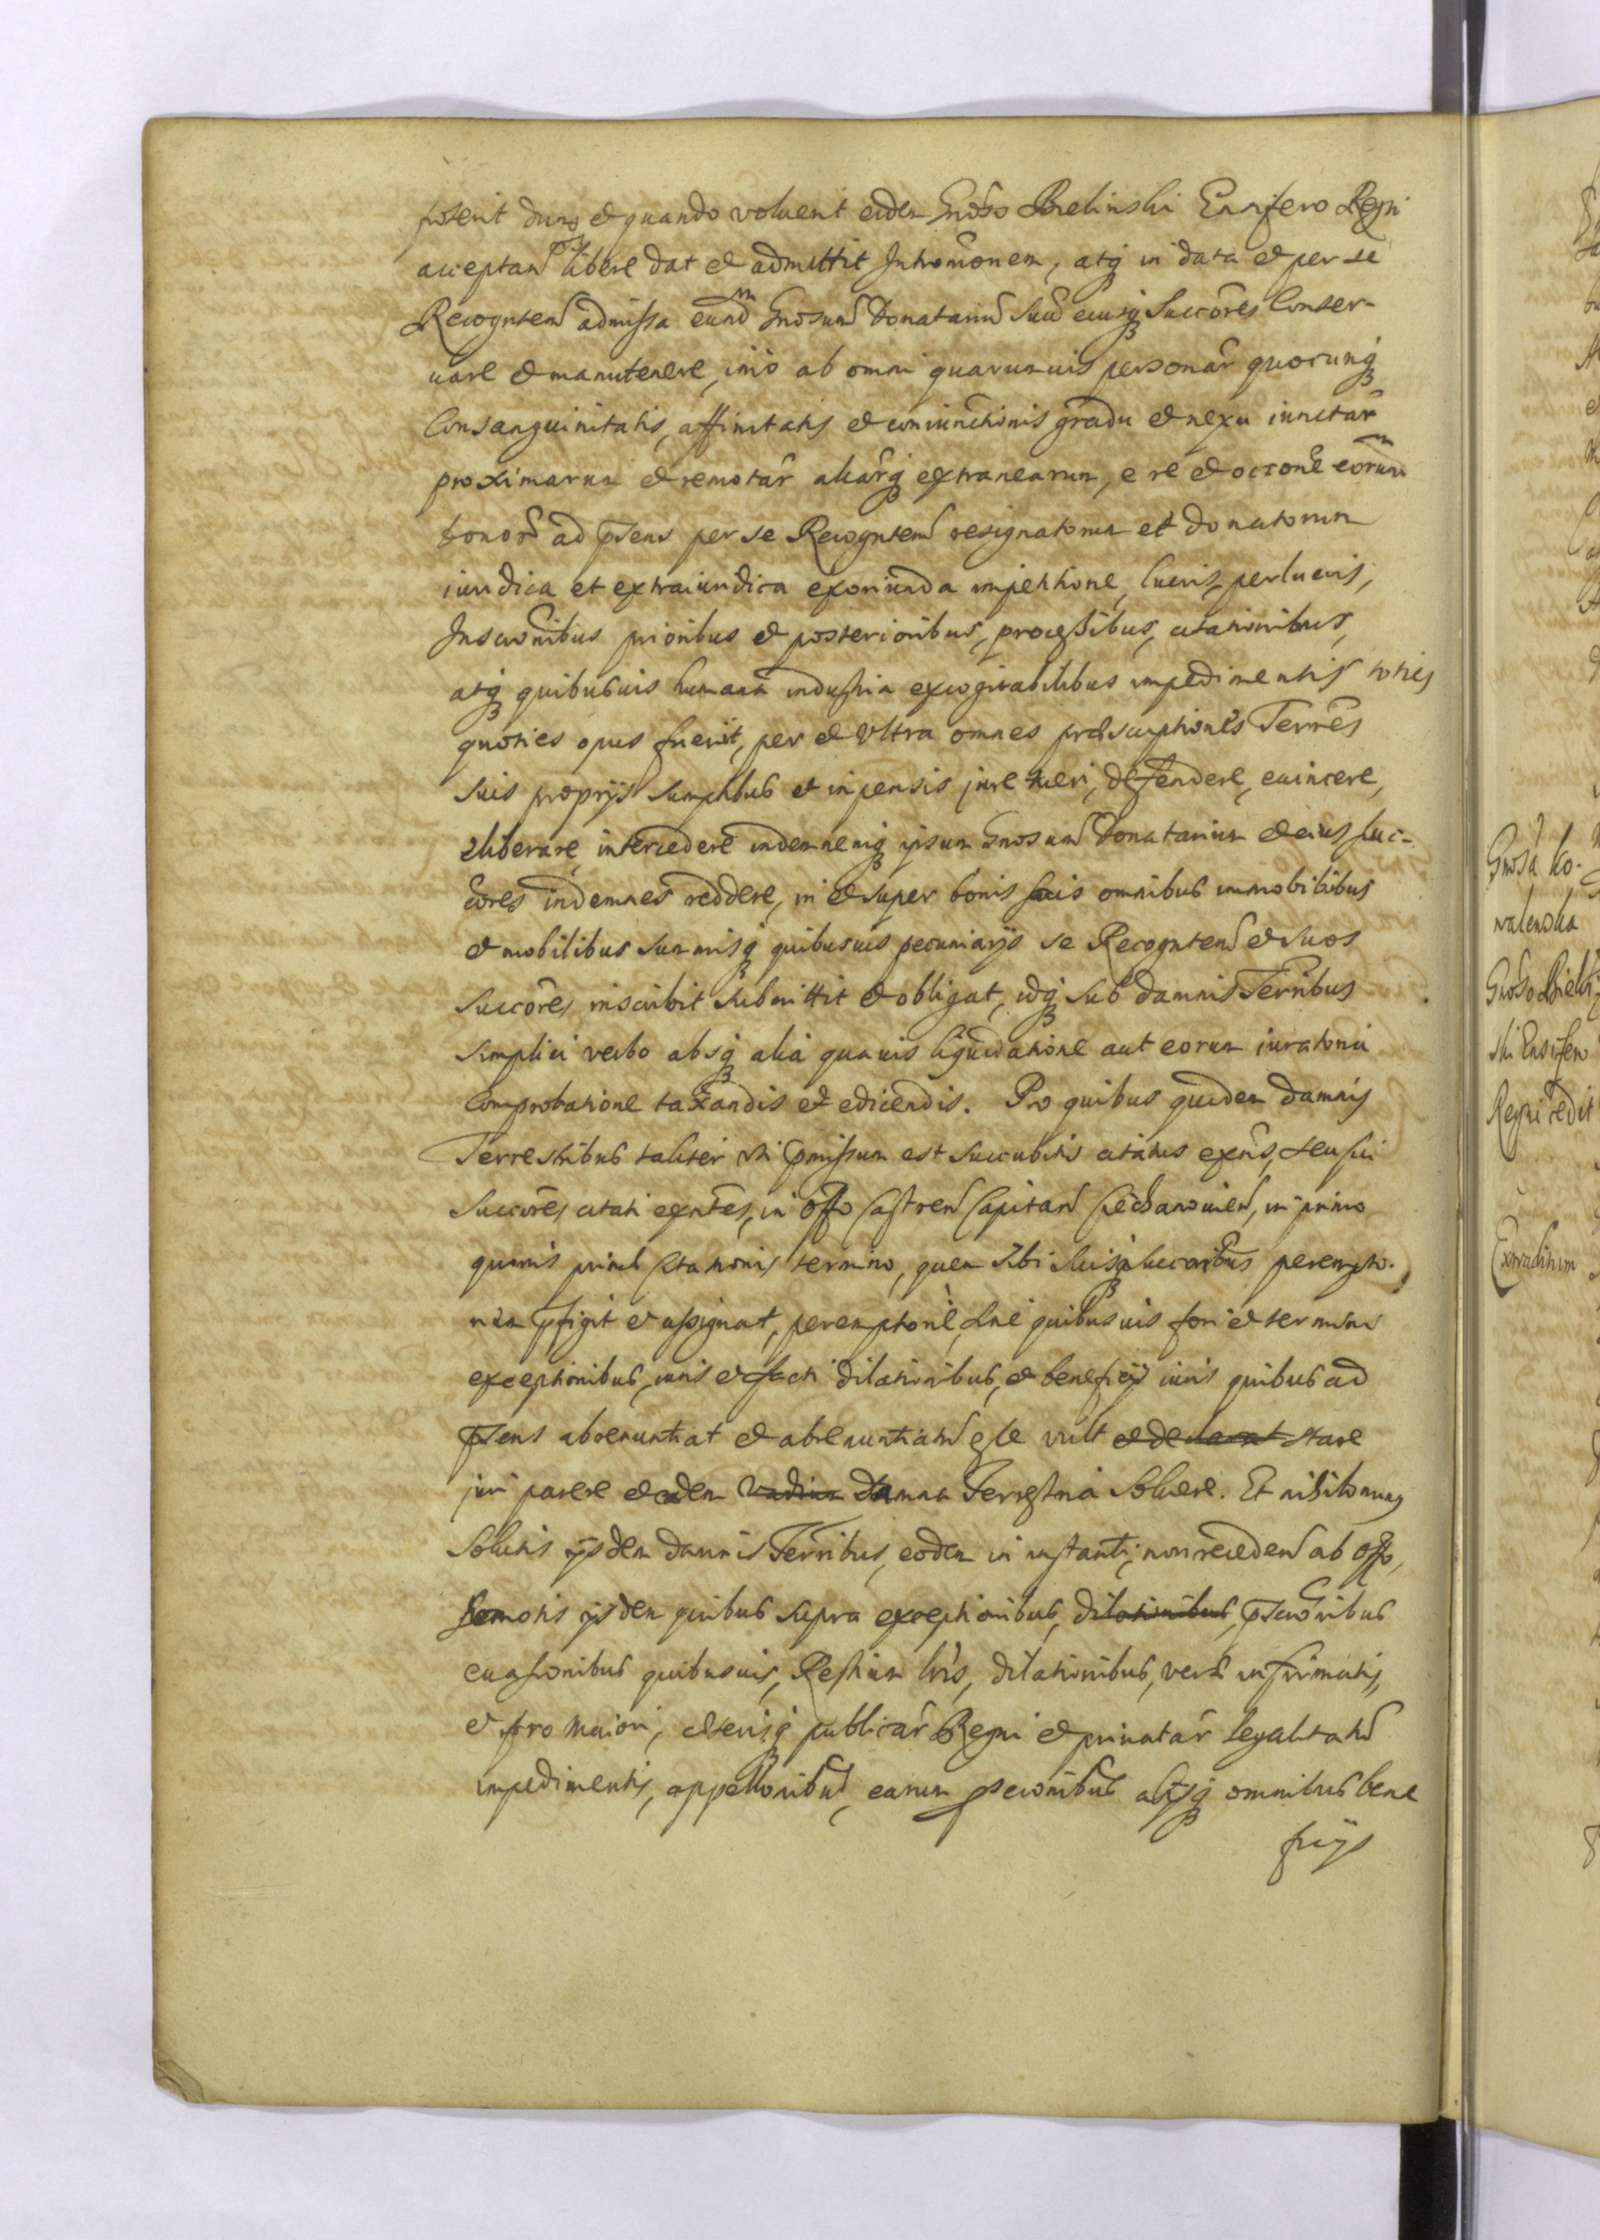 poterit dum et quando voluerit eidem Gnoso Bielinski Ensifero Regni
acceptan libere dat et admittit Intromonem, atq in data et per se
Recogntem admissa eund Gnosum Donatarium suu eiusq Succores Conser-
uare et manutenere, imo ab omni quarumuis personar quocunq
Consanguinitatis, affinitatis et coniunctionis gradu et nexu iunctar
proximarum et remotar aliarq extranearum, e re et occone eorum
bonor ad psens per se Recogntem resignatorum et donatorum
iuridica et extraiuridica exoriunda impetitione, lucris, perlucris,
Inscronibus prioribus et posterioribus, processibus, citationibus,
atq quibusuis humana industria excogitabilibus impedimentis toties
quoties opus fuerit, per et vltra omnes prescriptiones Terres
suis proprijs sumptibus et inpensis jure tueri, defendere, euincere,
eliberare, intercedere indemnemq ipsum Gnosum Donatarium et eius Suc-
cores indemnes reddere, in et super bonis suis omnibus immobilibus
et mobilibus summisq quibusuis pecuniarijs se Recogntem et suos
succores inscribit submittit et obligat, idq sub damnis Terribus
simplici verbo absq alia quauis liquidatione aut eorum iuratoria
Comprobatione taxandis et edicendis. Pro quibus quidem damnis
Terrestribus taliter vti pmissum est succubitis citatus exns, seu sui
Succores citati exntes, in offo Castren Capitan Ciechanouien, in primo
quouis primae Citationis termino, quem sibi suisq succoribus perempto-
rium pfigit et assignat, peremptorie, sine quibusuis fori et termini
exceptionibus, iuris et facti dilationibus, et beneficijs iuris quibus ad
psens abrenuntiat et abrenuntiatu esse vult et declarat stare
juri parere et eadem vadium damna Terrestria soluere. Et nihilominus
Solutis ijsdem damnis Terribus, eodem in instanti, non recedend ab offo,
semotis ijsdem quibus supra exceptionibus, dilationibus, pscronibus
euasionibus quibusuis, Restium lris, dilationibus, vera infirmatis,
et pro maiori, ceterisq publicar Regni et priuatar legalitatu
impedimentis, appellonibus, earum psecionibus alijsq omnibus bene
ficijs
Gnosa Ko-
walewska
Gnoso Bielin
ski Ensifero
Regni cedit
Extraditum